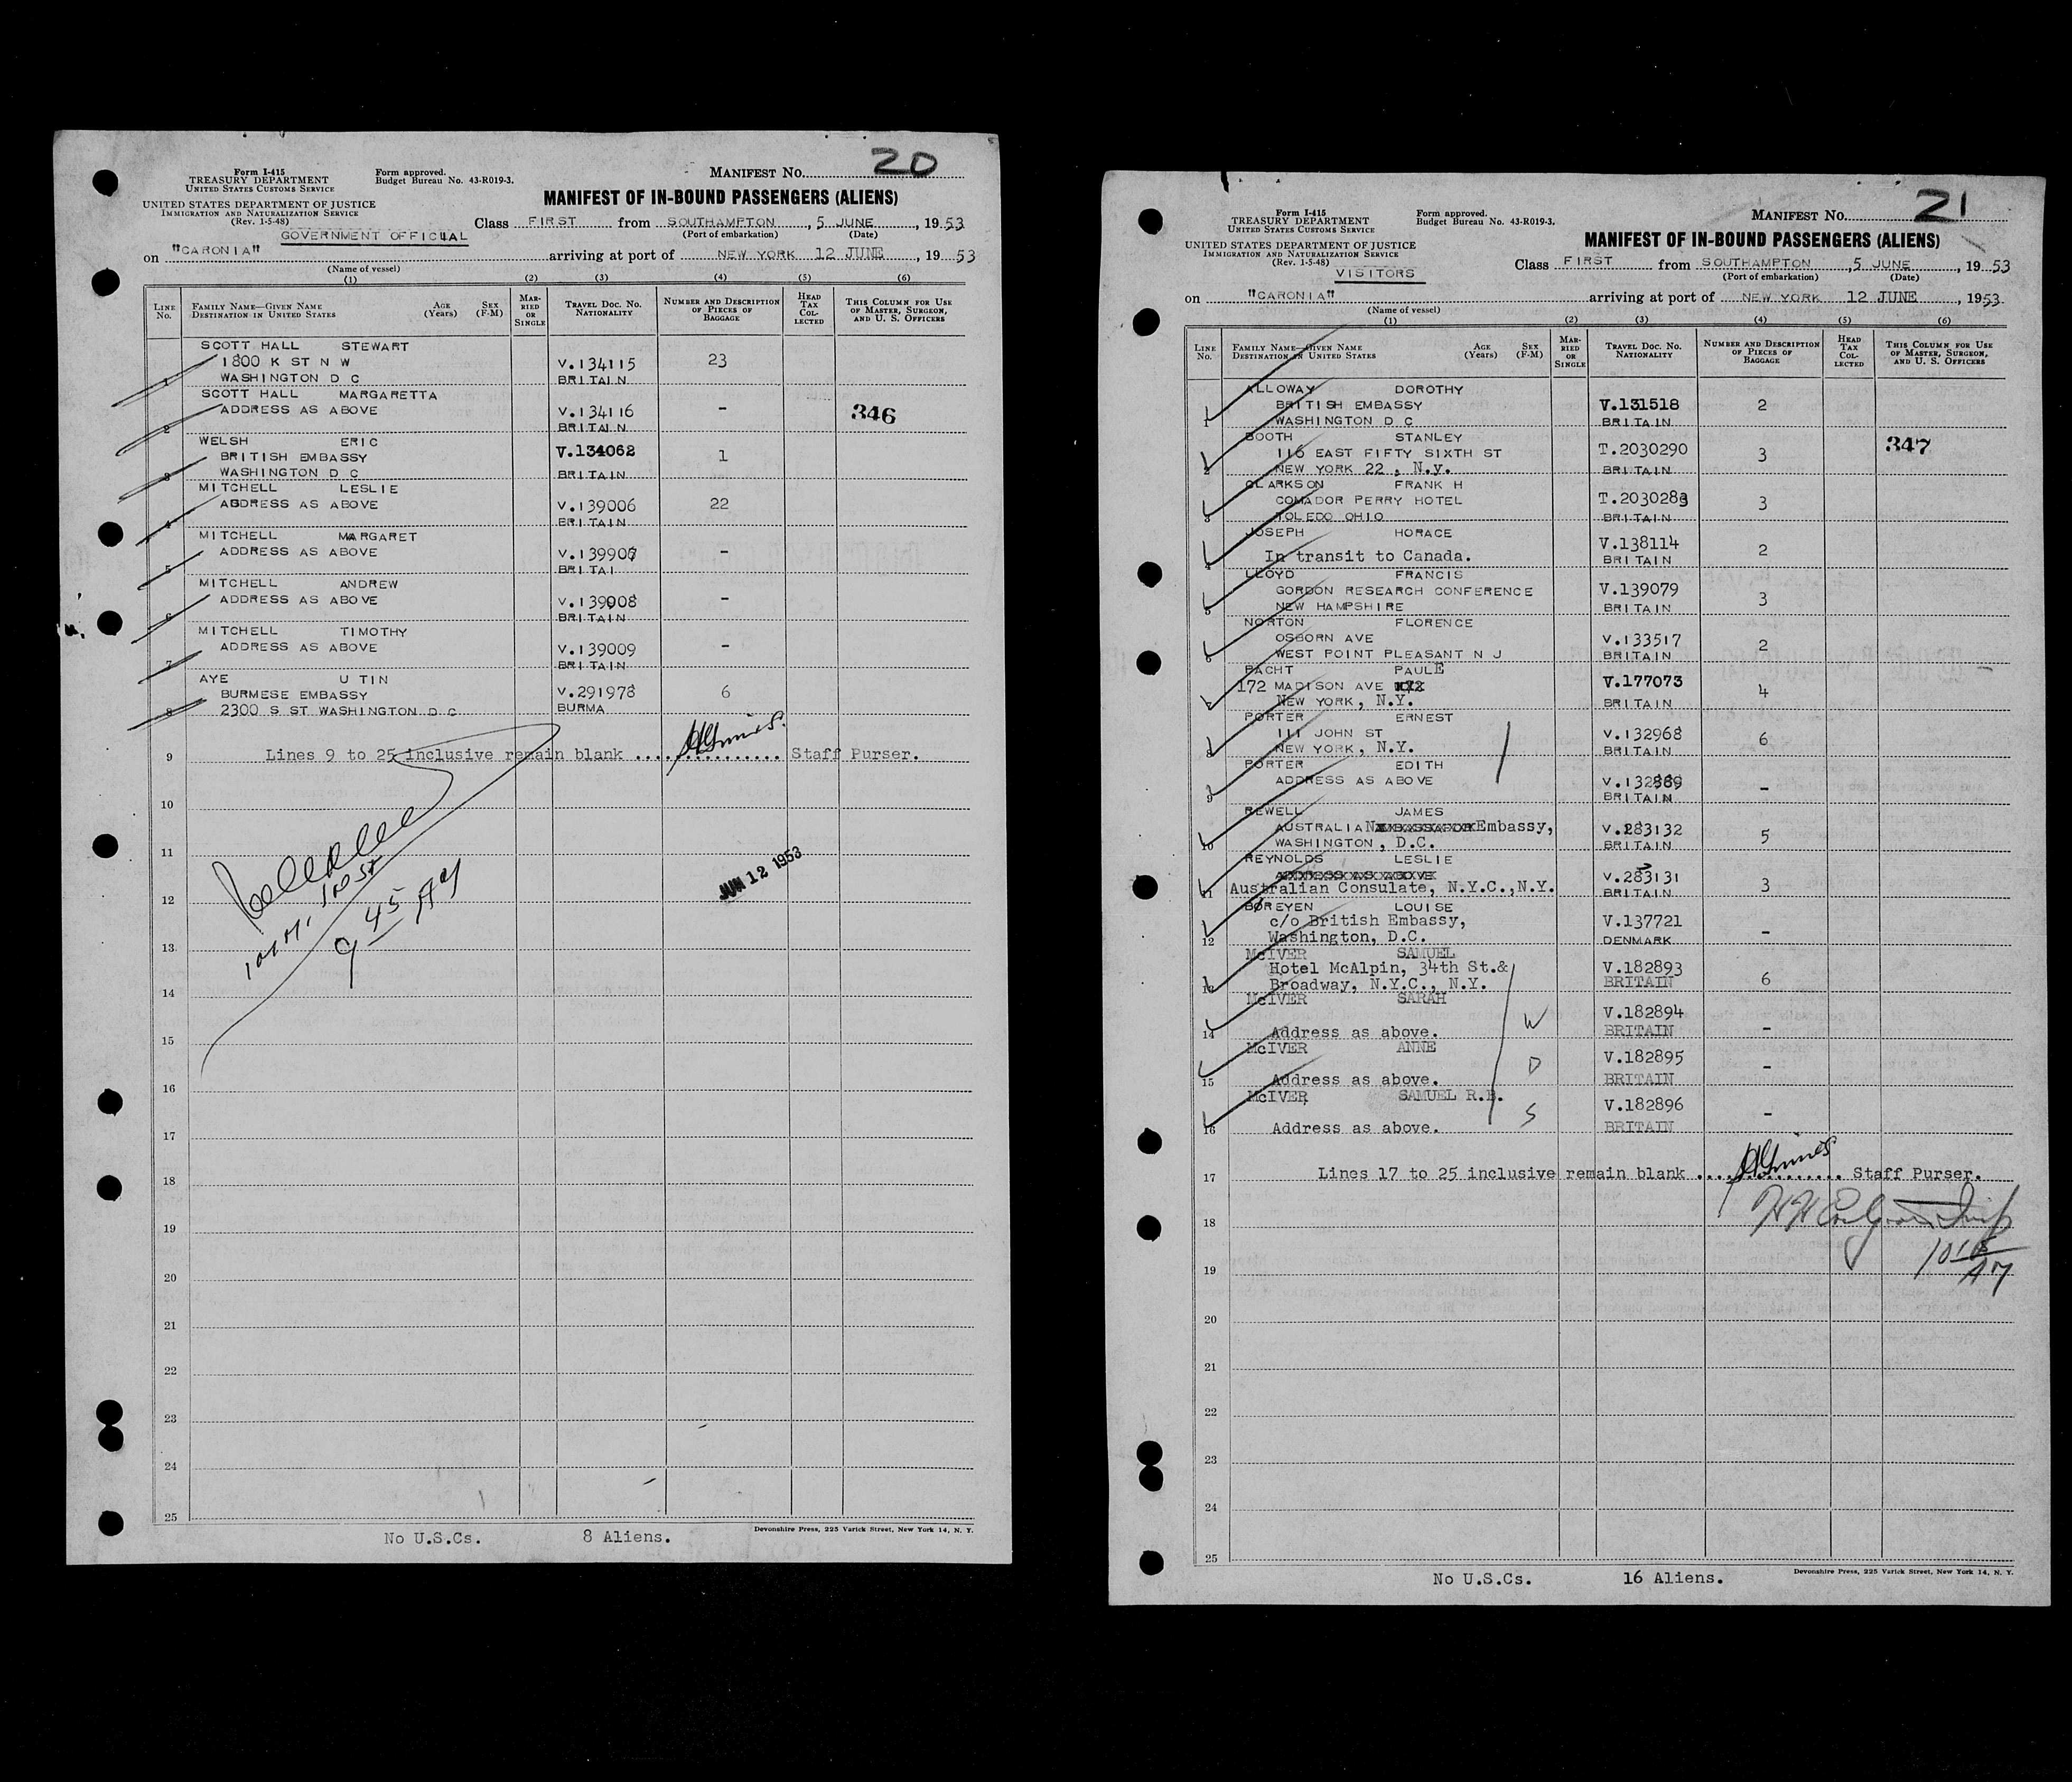 Form I-415
TREASURY DEPARTMENT
UNITED STATES CUSTOMS SERVICE
Form approved.
Budget Bureau No. 43-R019-3.
MANIFEST No. 20
UNITED STATES DEPARTMENT OF JUSTICE
IMMIGRATION AND NATURALIZATION SERVICE
(Rev. 1-5-48)
MANIFEST OF IN-BOUND PASSENGERS (ALIENS)
GOVERNMENT OFFICIAL
Class FIRST from SOUTHAMPTON, 5 JUNE, 1953
(Port of embarkation) (Date)
on "CARONIA" arriving at port of NEW YORK 12 JUNE, 1953
(Name of vessel)
(1) (2) (3) (4) (5) (6)
LINE No. FAMILY NAME—GIVEN NAME DESTINATION IN UNITED STATES AGE (Years) SEX (F-M) MARRIED OR SINGLE TRAVEL DOC. NO. NATIONALITY NUMBER AND DESCRIPTION OF PIECES OF BAGGAGE HEAD TAX COLLECTED THIS COLUMN FOR USE OF MASTER, SURGEON, AND U. S. OFFICERS
SCOTT HALL STEWART
1800 K ST N W V.134115 23
1 WASHINGTON D C BRITAIN
SCOTT HALL MARGARETTA
ADDRESS AS ABOVE V.134116 - 346
2 BRITAIN
WELSH ERIC
BRITISH EMBASSY V.134062 1
3 WASHINGTON D C BRITAIN
MITCHELL LESLIE
ADDRESS AS ABOVE V.139006 22
4 BRITAIN
MITCHELL MARGARET
ADDRESS AS ABOVE V.139907 -
5 BRITAI
MITCHELL ANDREW
ADDRESS AS ABOVE V.139008 -
6 BRITAIN
MITCHELL TIMOTHY
ADDRESS AS ABOVE V.139009 -
7 BRITAIN
AYE U TIN
BURMESE EMBASSY V.291978 6
8 2300 S ST WASHINGTON D C BURMA
9 Lines 9 to 25 inclusive remain blank Staff Purser.
10
11
JUN 12 1953
9 45 AM
12
13
14
15
16
17
18
19
20
21
22
23
24
25
No U.S.Cs. 8 Aliens.
Devonshire Press, 225 Varick Street, New York 14, N. Y.
Form I-415
TREASURY DEPARTMENT
UNITED STATES CUSTOMS SERVICE
Form approved.
Budget Bureau No. 43-R019-3.
MANIFEST No. 21
UNITED STATES DEPARTMENT OF JUSTICE
IMMIGRATION AND NATURALIZATION SERVICE
(Rev. 1-5-48)
MANIFEST OF IN-BOUND PASSENGERS (ALIENS)
VISITORS
Class FIRST from SOUTHAMPTON, 5 JUNE, 1953
(Port of embarkation) (Date)
on "CARONIA" arriving at port of NEW YORK 12 JUNE, 1953
(Name of vessel)
(1) (2) (3) (4) (5) (6)
LINE No. FAMILY NAME—GIVEN NAME DESTINATION IN UNITED STATES AGE (Years) SEX (F-M) MARRIED OR SINGLE TRAVEL DOC. NO. NATIONALITY NUMBER AND DESCRIPTION OF PIECES OF BAGGAGE HEAD TAX COLLECTED THIS COLUMN FOR USE OF MASTER, SURGEON, AND U. S. OFFICERS
ALLOWAY DOROTHY
BRITISH EMBASSY V.131518 2
1 WASHINGTON D C BRITAIN
BOOTH STANLEY 347
116 EAST FIFTY SIXTH ST T.2030290 3
2 NEW YORK 22, N.y. BRITAIN
CLARKSON FRANK H
COMADOR PERRY HOTEL T.2030283 3
3 TOLEDO OHIO BRITAIN
JOSEPH HORACE
In transit to Canada. V.138114 2
4 BRITAIN
LLOYD FRANCIS
GORDON RESEARCH CONFERENCE V.139079 3
5 NEW HAMPSHIRE BRITAIN
NORTON FLORENCE
OSBORN AVE V.133517 2
6 WEST POINT PLEASANT N J BRITAIN
PACHT PAULE
172 MADISON AVE V.177073 4
7 NEW YORK, N.Y. BRITAIN
PORTER ERNEST
111 JOHN ST V.132968 6
8 NEW YORK, N.Y. BRITAIN
PORTER EDITH
ADDRESS AS ABOVE -
9 BRITAIN
REWELL JAMES
AUSTRALIAN Embassy, V.283132 5
10 WASHINGTON, D.C. BRITAIN
REYNOLDS LESLIE
V.283131 3
11 Australian Consulate, N.Y.C.,N.Y. BRITAIN
BOREYEN LOUISE
c/o British Embassy, V.137721 -
12 Washington, D.C. DENMARK
McIVER SAMUEL
Hotel McAlpin, 34th St.& V.182893 6
13 Broadway, N.Y.C., N.Y. BRITAIN
McIVER SARAH
W V.182894 -
14 Address as above. BRITAIN
McIVER ANNE
D V.182895 -
15 Address as above. BRITAIN
McIVER SAMUEL R.B.
S V.182896 -
16 Address as above. BRITAIN
17 Lines 17 to 25 inclusive remain blank Staff Purser.
18
10 15 AM
19
20
21
22
23
24
25
No U.S.Cs. 16 Aliens.
Devonshire Press, 225 Varick Street, New York 14, N. Y.